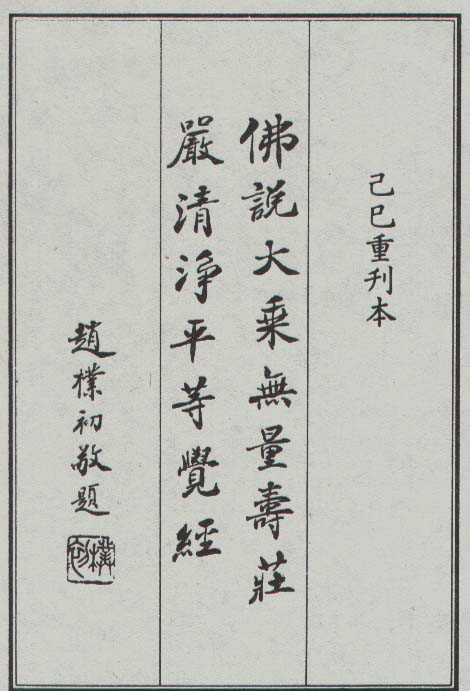 己巳重刊本
佛說大乘無量壽莊
嚴清淨平等覺經
趙樸初敬題
樸初